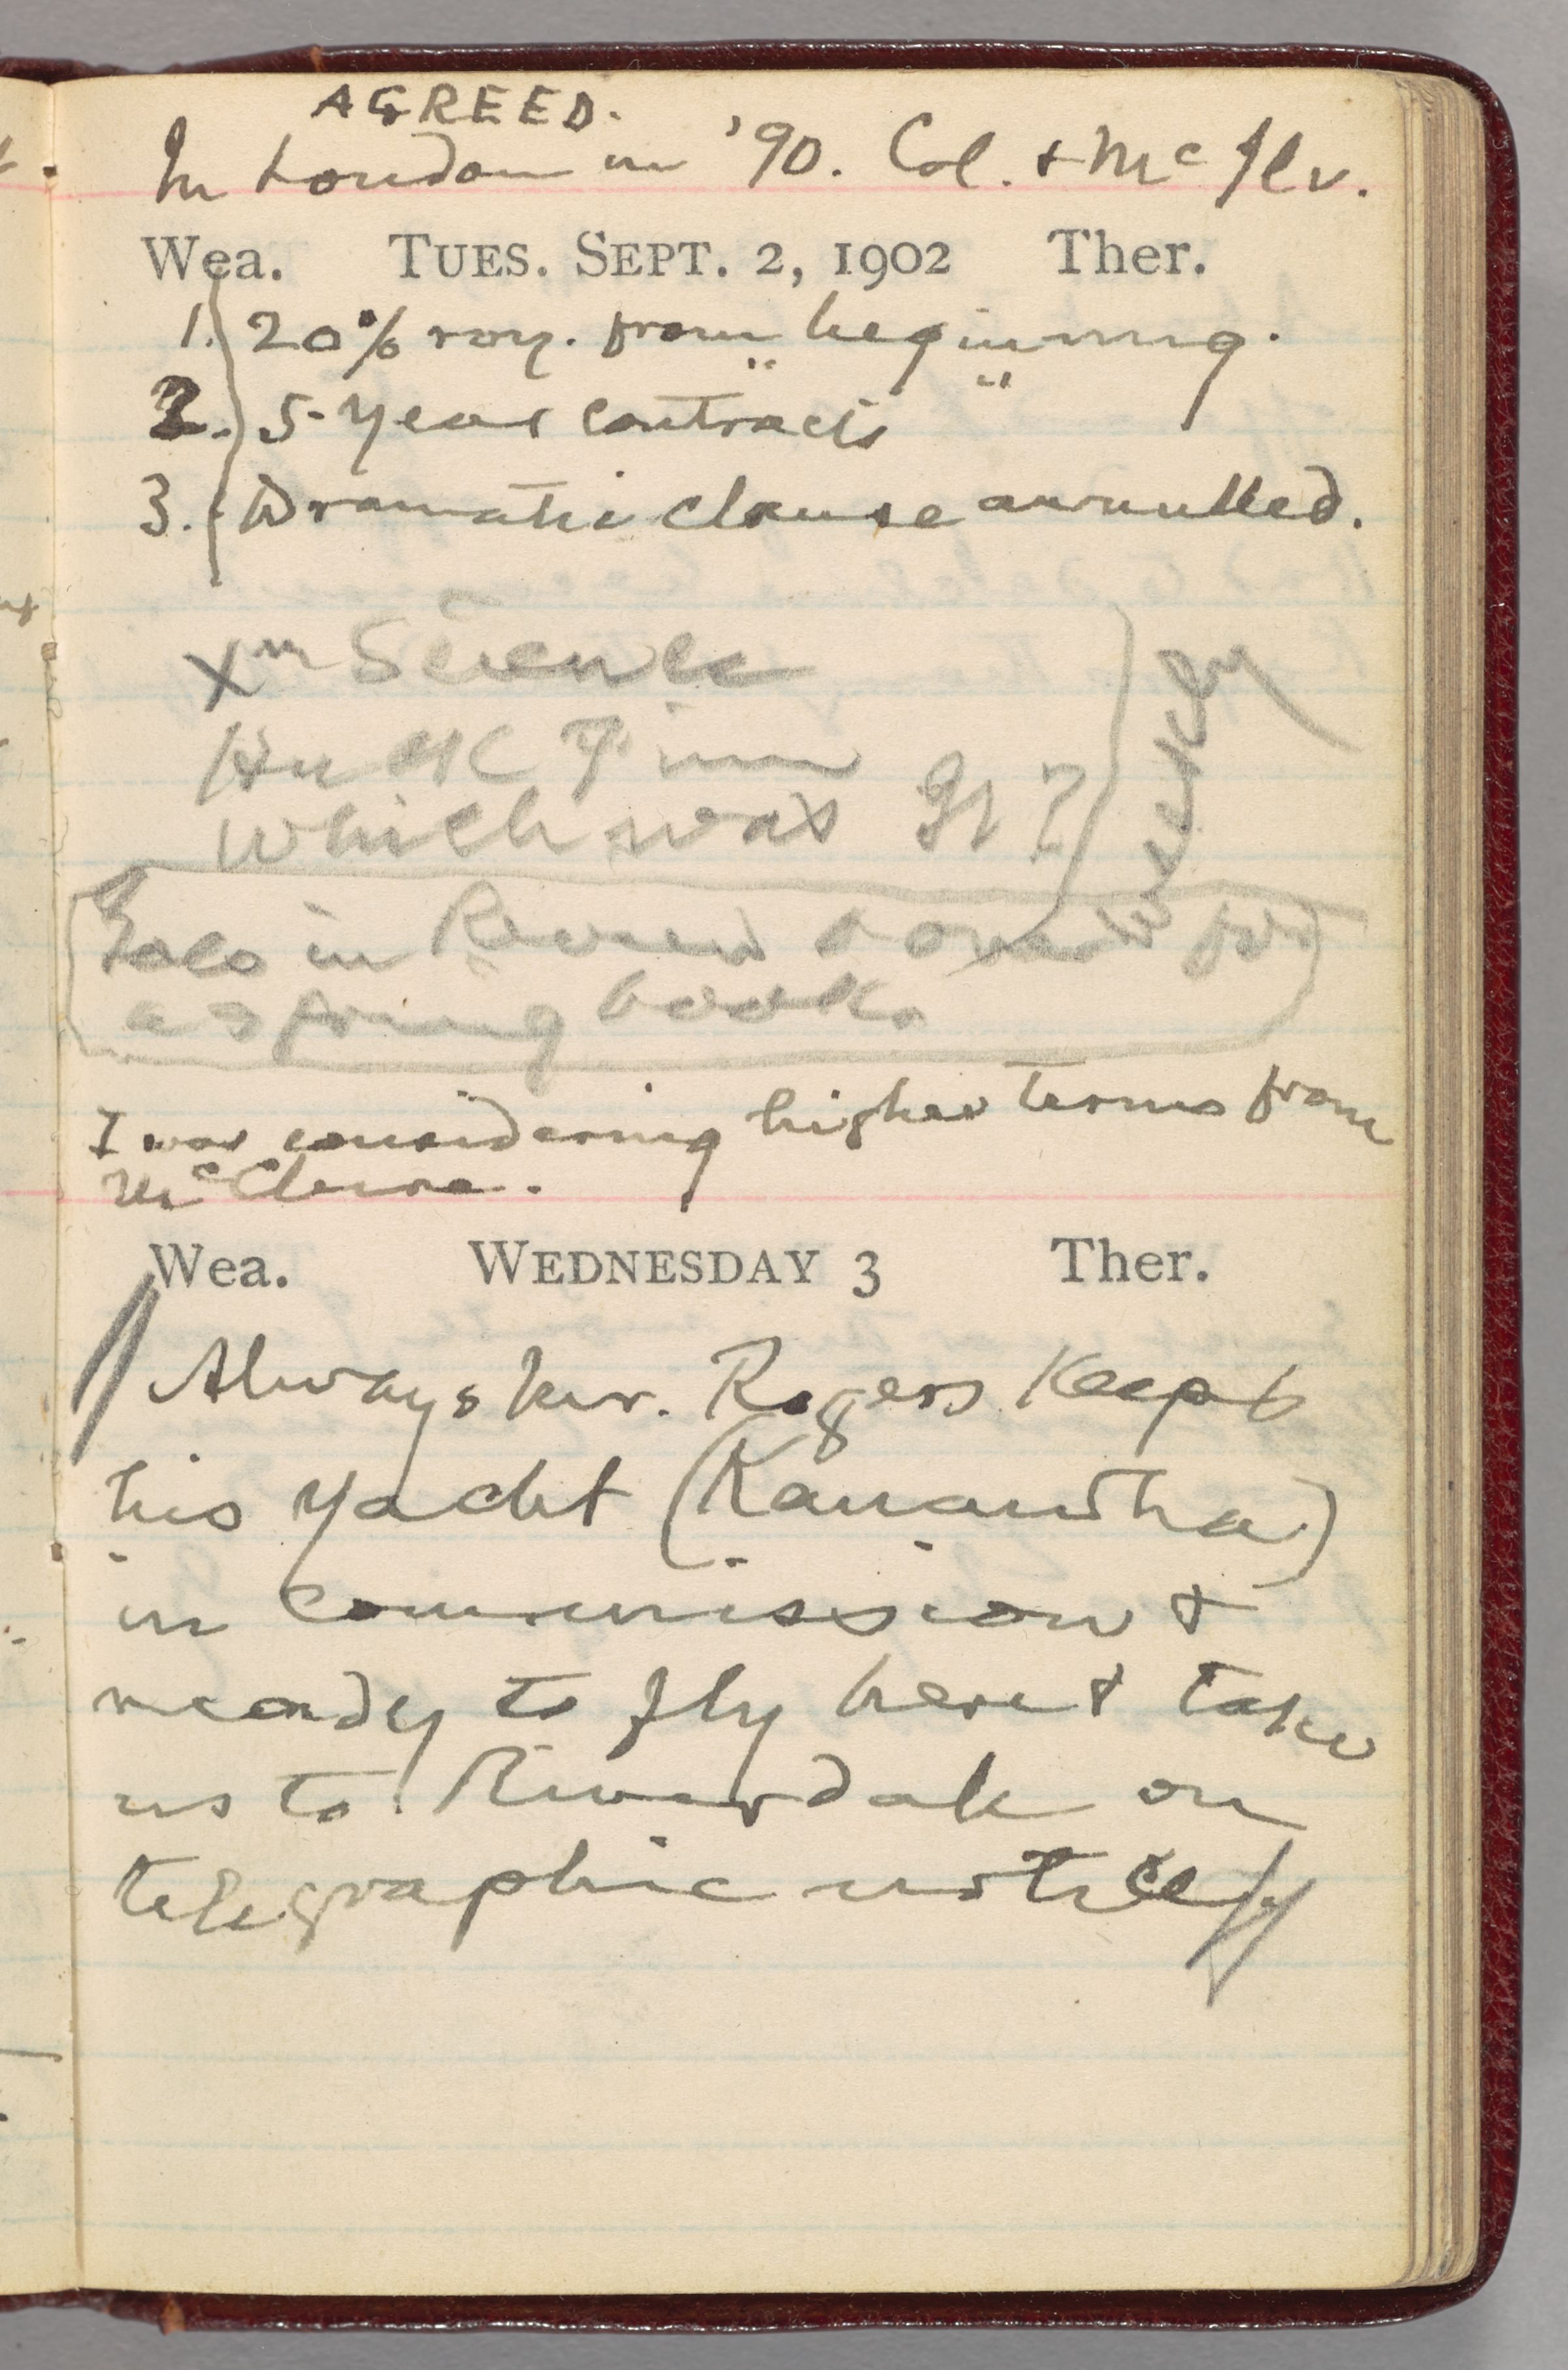 AGREED.
In London in '90. Col. + Mc Ilv.
Wea. TUES. SEPT. 2, 1902 Ther.
1. 20% roy. from beginning.
2. 5-year contracts
3. Dramatic clause annulled.
Xn Science
Huck Finn
Which was It?
weekly
in Review & for
a spring book.
I was considering higher terms from
McClure.
Wea. WEDNESDAY 3 Ther.
Always Mr. Rogers keeps
his yacht (Kanawha)
in commission &
ready to fly here & take
us to Riverdale on
telegraphic notice.